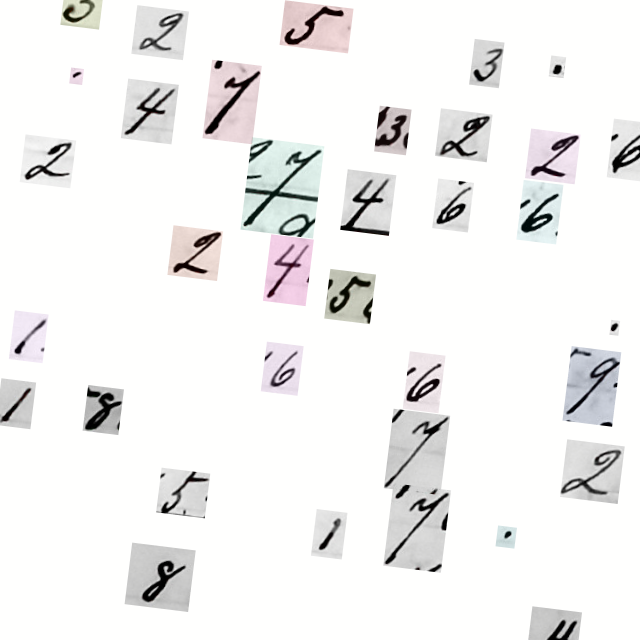 5 2 5
3 .
4 7
3 2 2 6
2 7 4 6 6
2 4 5
1 6 6 9
1 8
7 2
5 1 7 .
8
4